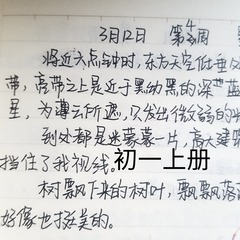 3月12日 第4周
将近六点钟时,东方天空低垂
带,亮带之上是近于黑幼黑的深蓝
星,为薄云所遮,只发出微弱的
到处都是迷蒙蒙一片,高大建
挡住了我视线。初一上册
树飘下来的树叶,飘飘落
好像也挺美的。